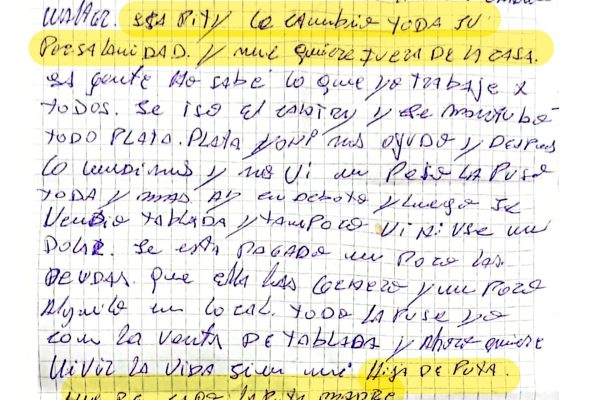 ESA PITY LO CAMBIO TODA SU
PERSALANIDAD. y me quiere FUERA DE LA CASA.
es gente no sabe lo que yo trabaje x
TODOS. Se iso el y se mantubo
TODO PLATA. PLATA y me ayudo y DESPUES
lo bendimos y no Vi un Peso LA PUSE
TODA y mas AY en DEPOTO y luego se
Vendio TABLADA y TAMPOCO Vi NI USE un
DOLAR. Se esta PAGADO un Poco LAS
DEUDAS. que ella LAS GENERO y un Poco
Alquilo un local. TODO LA PUSE yo
com la VENTA DE TABLADA y Ahora quiere
VIVIR LA VIDA sim mi HIJA DE PUTA.
LA PUTA MADRE